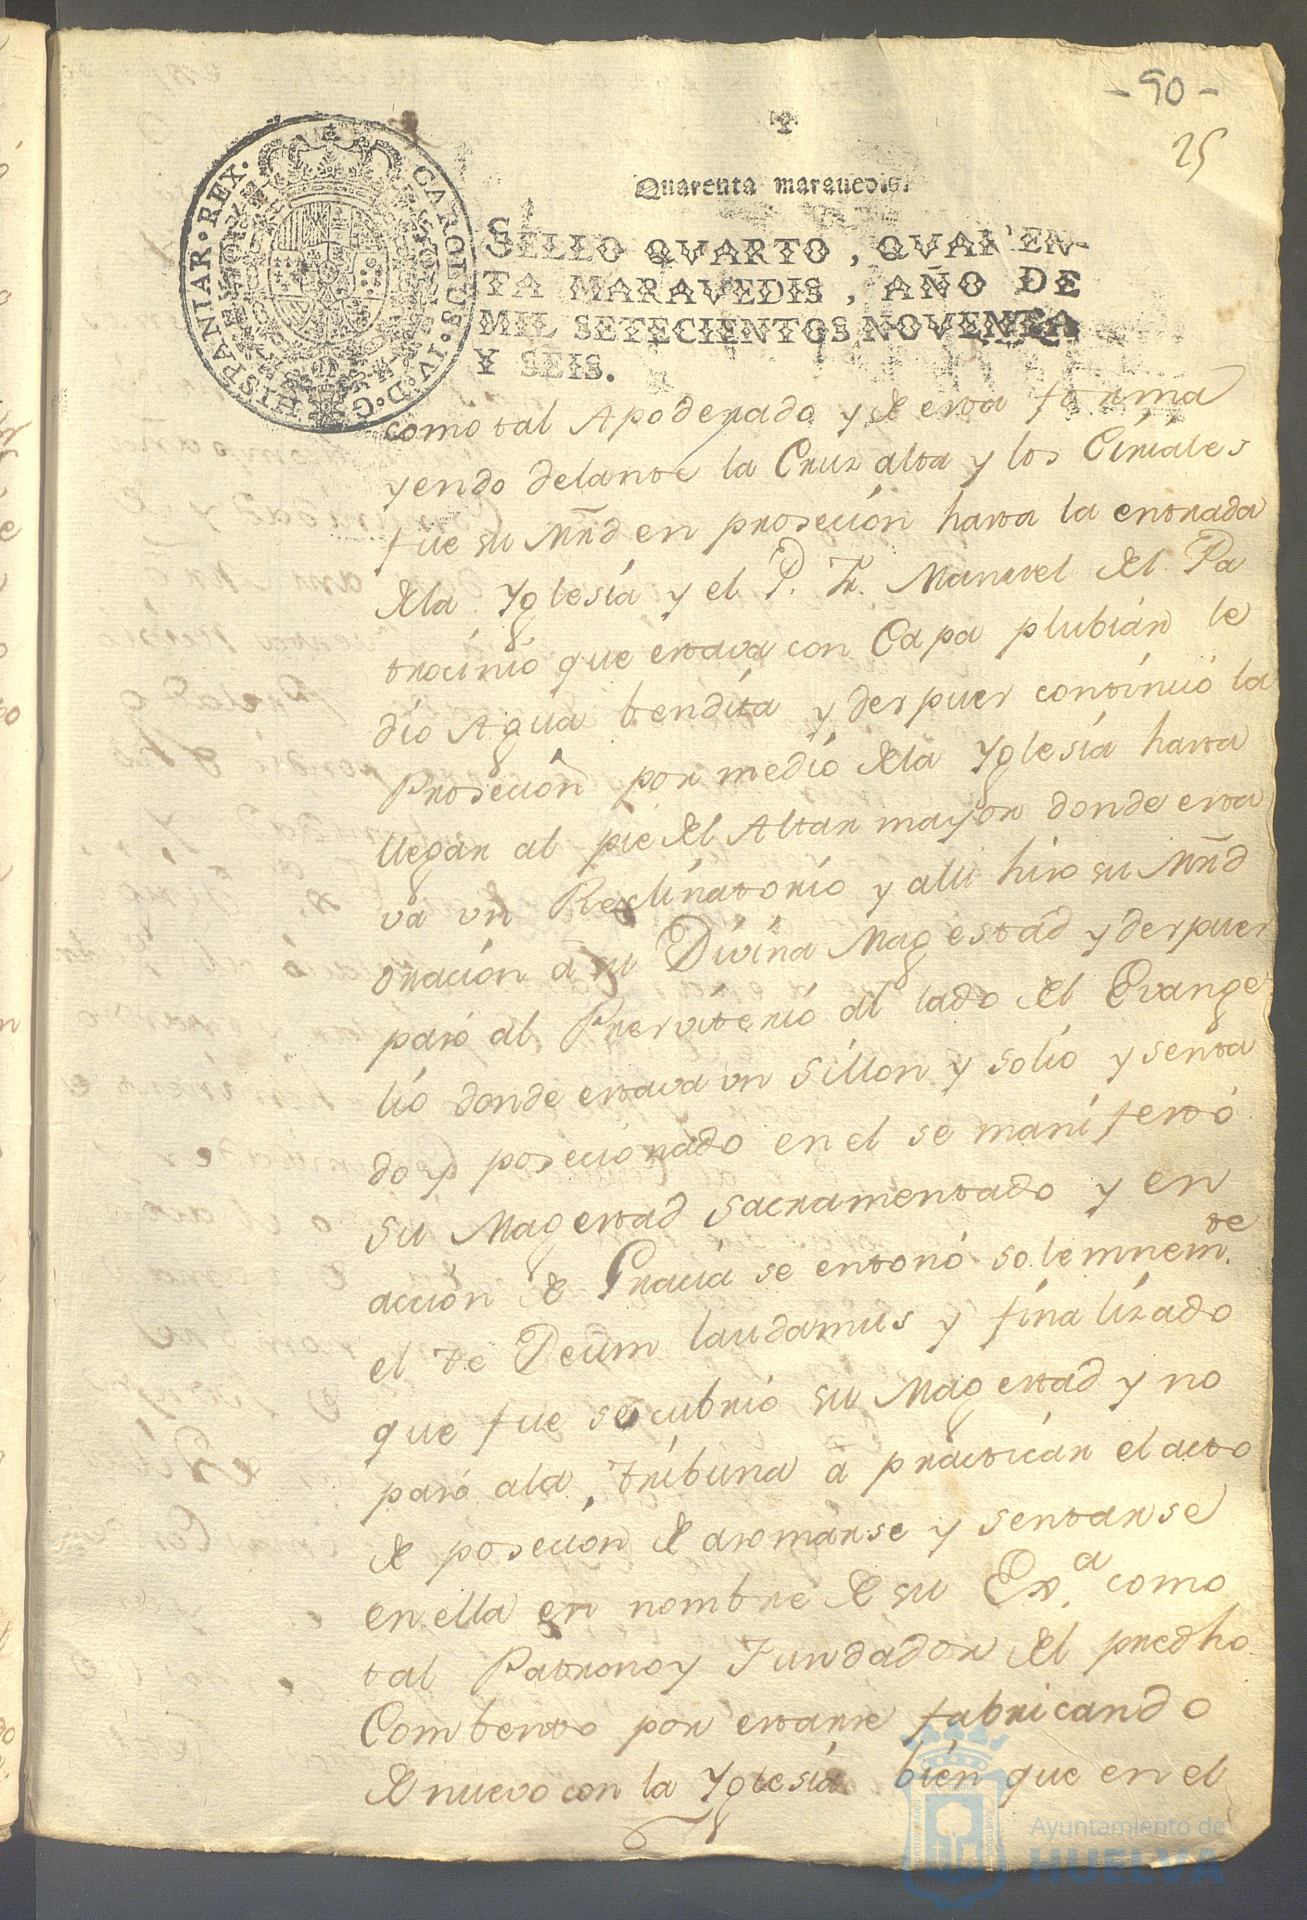 - 90 -
25
Quarenta maravedis.
SELLO QVARTO, QVAREN-
TA MARAVEDIS, AÑO DE
MIL SETECIENTOS NOVENTA
Y SEIS.
CAROLUS·IV·D·G·HISPANIAR·REX·
como tal Apoderado y de esta forma
yendo delante la Cruz alta y los Ciriales
fue su Mrd en proseción hasta la entrada
dela Yglesia y el P. Fr. Manuel del Pa
trocinio que estava con Capa plubiál le
dio Agua bendita y despues continuó la
Proseción por medio dela Yglesia hasta
llegar al pie del Altar mayor donde esta
va un Reclinatorio y alli hizo su Mrd
oración á su Divina Magestad y despues
pasó al Presviterio al lado del Evange
lio donde estava un Sillon y solio y senta
do y posecionado en el se manifestó
su Magestad Sacramentado y en
acción de Gracia se entonó solemnemte.
el te Deum laudamus y finalizado
que fue se cubrió su Magestad y no
pasó ala tribuna á practicar el acto
de poseción de asomarse y sentarse
en ella en nombre de su Exa. como
tal Patrono y Fundador del predho
Combento por estarse fabricando
de nuevo con la Yglesia bien que en el
Ayuntamiento de
HUELVA